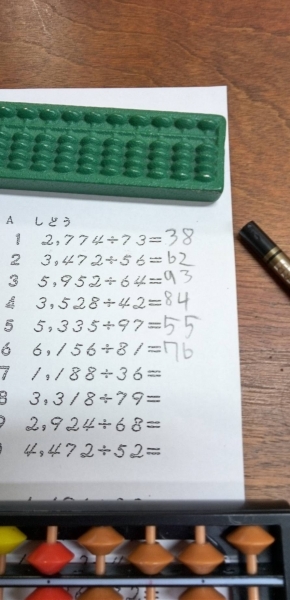 A しどう
1 2,774÷73=38
2 3,472÷56=62
3 5,952÷64=93
4 3,528÷42=84
5 5,335÷97=55
6 6,156÷81=76
7 1,188÷36=
8 3,318÷79=
9 2,924÷68=
4,472÷52=